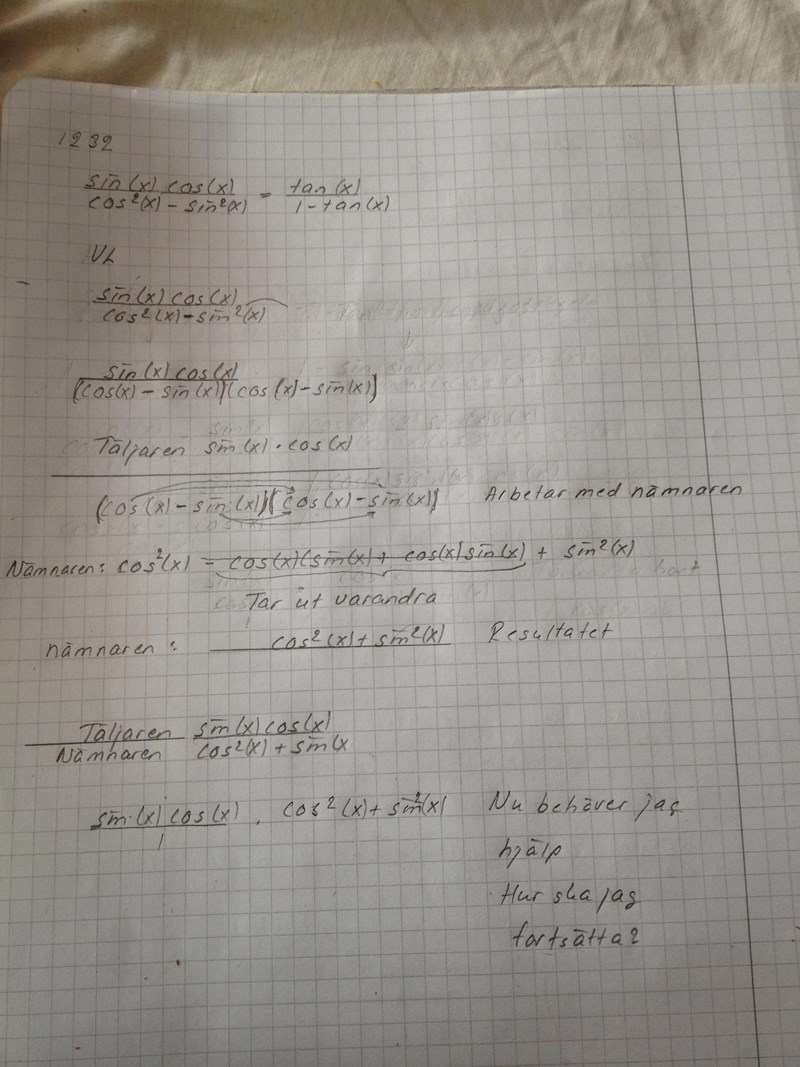 1232
sin(x) cos(x) / cos²(x) - sin²(x) = tan(x) / 1 - tan(x)
VL
sin(x) cos(x)
cos²(x) - sin²(x)
sin(x) cos(x)
(cos(x) - sin(x))(cos(x) - sin(x))
Täljaren sin(x) · cos(x)
(cos(x) - sin(x))(cos(x) - sin(x)) Arbetar med nämnaren
Nämnaren: cos²(x) - cos(x)(sin(x) + cos(x) sin(x) + sin²(x)
Tar ut varandra
nämnaren: cos²(x) + sin²(x) Resultatet
Täljaren sin(x) cos(x)
Nämnaren cos²(x) + sin(x
sin(x) cos(x) / 1 · cos²(x) + sin²(x) Nu behöver jag
hjälp
Hur ska jag
fortsätta?